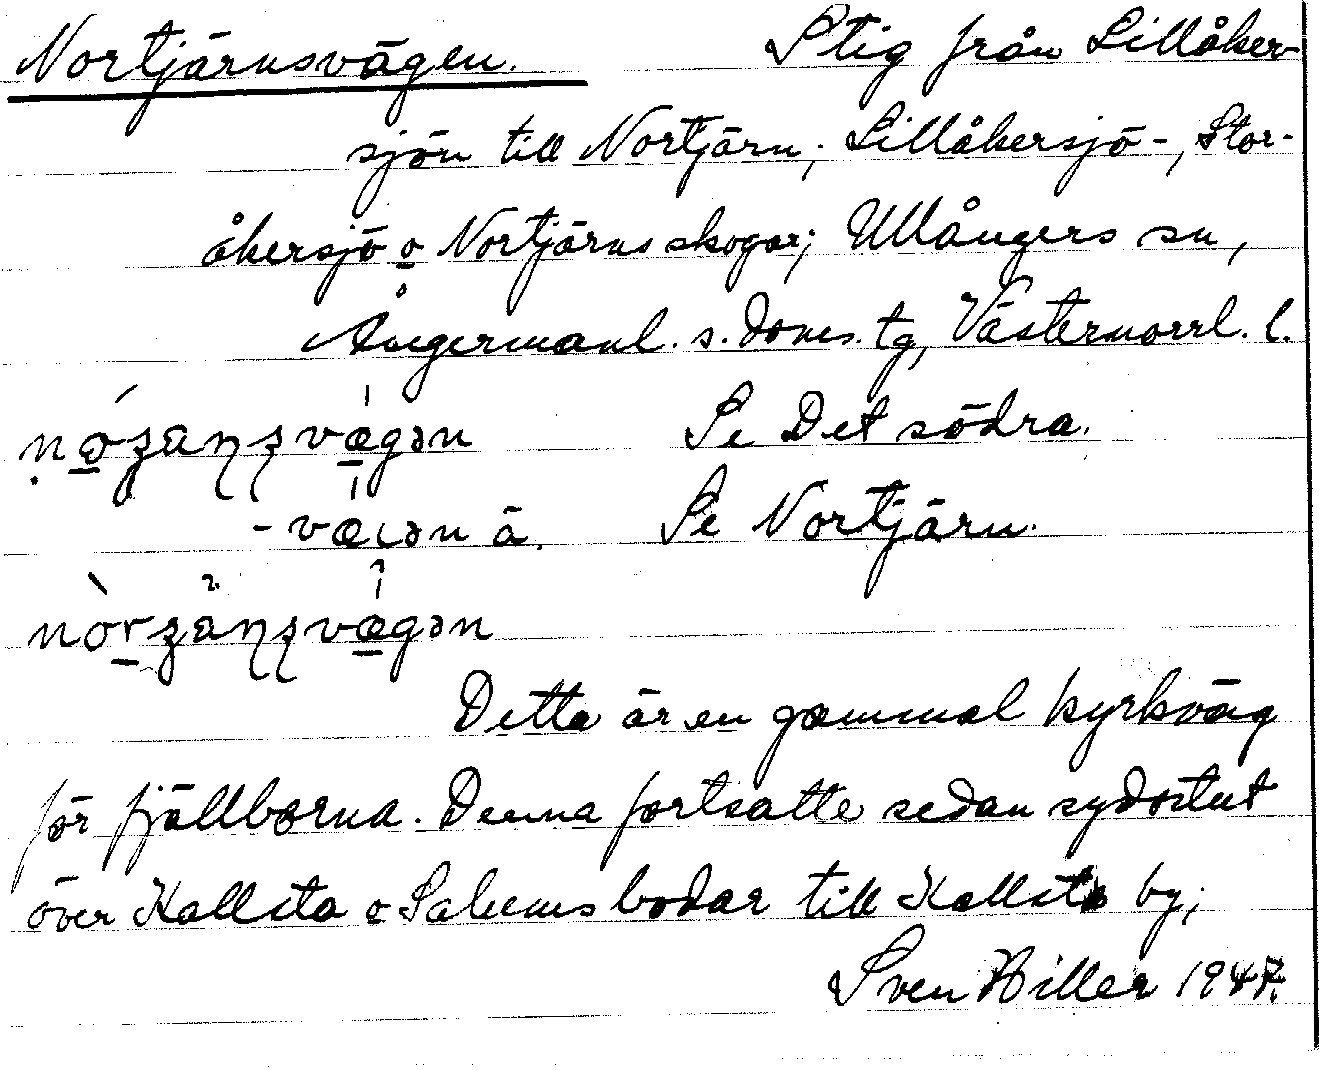 Nortjärnsvägen. Stig från Lillåker-
sjön till Nortjärn; Lillåkersjö-, Stor-
åkersjö o Nortjärns skogar; Ullångers sn,
Ångermanl. s. doms. tg, Västernorrl. l.
Se Det södra.
ä. Se Nortjärn.
Detta är en gammal kyrkväg
för fjällborna. Denna fortsatte sedan sydostut
över Kallsta o Salums bodar till Kallsta by;
Sven Hiller 1947.